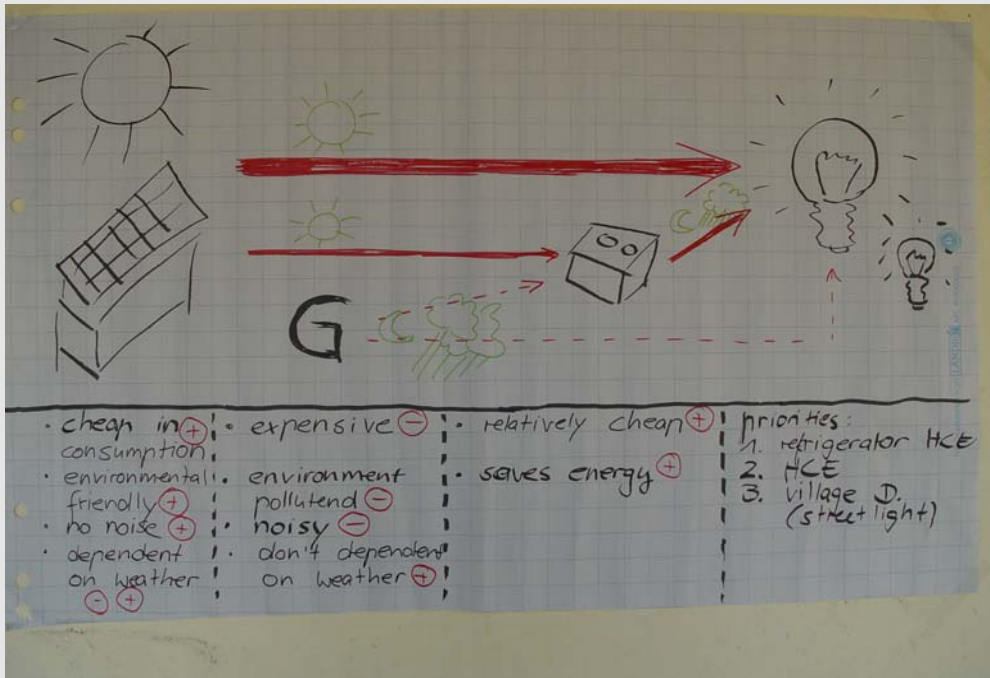 G
· cheap in +
consumption
· environmental
friendly +
· no noise +
· dependent
on weather
- +
· expensive -
· environment
pollutend -
· noisy -
· don't dependent
on weather +
· relatively cheap +
· saves energy +
priorities:
1. refrigerator HCE
2. HCE
3. village D.
(street light)